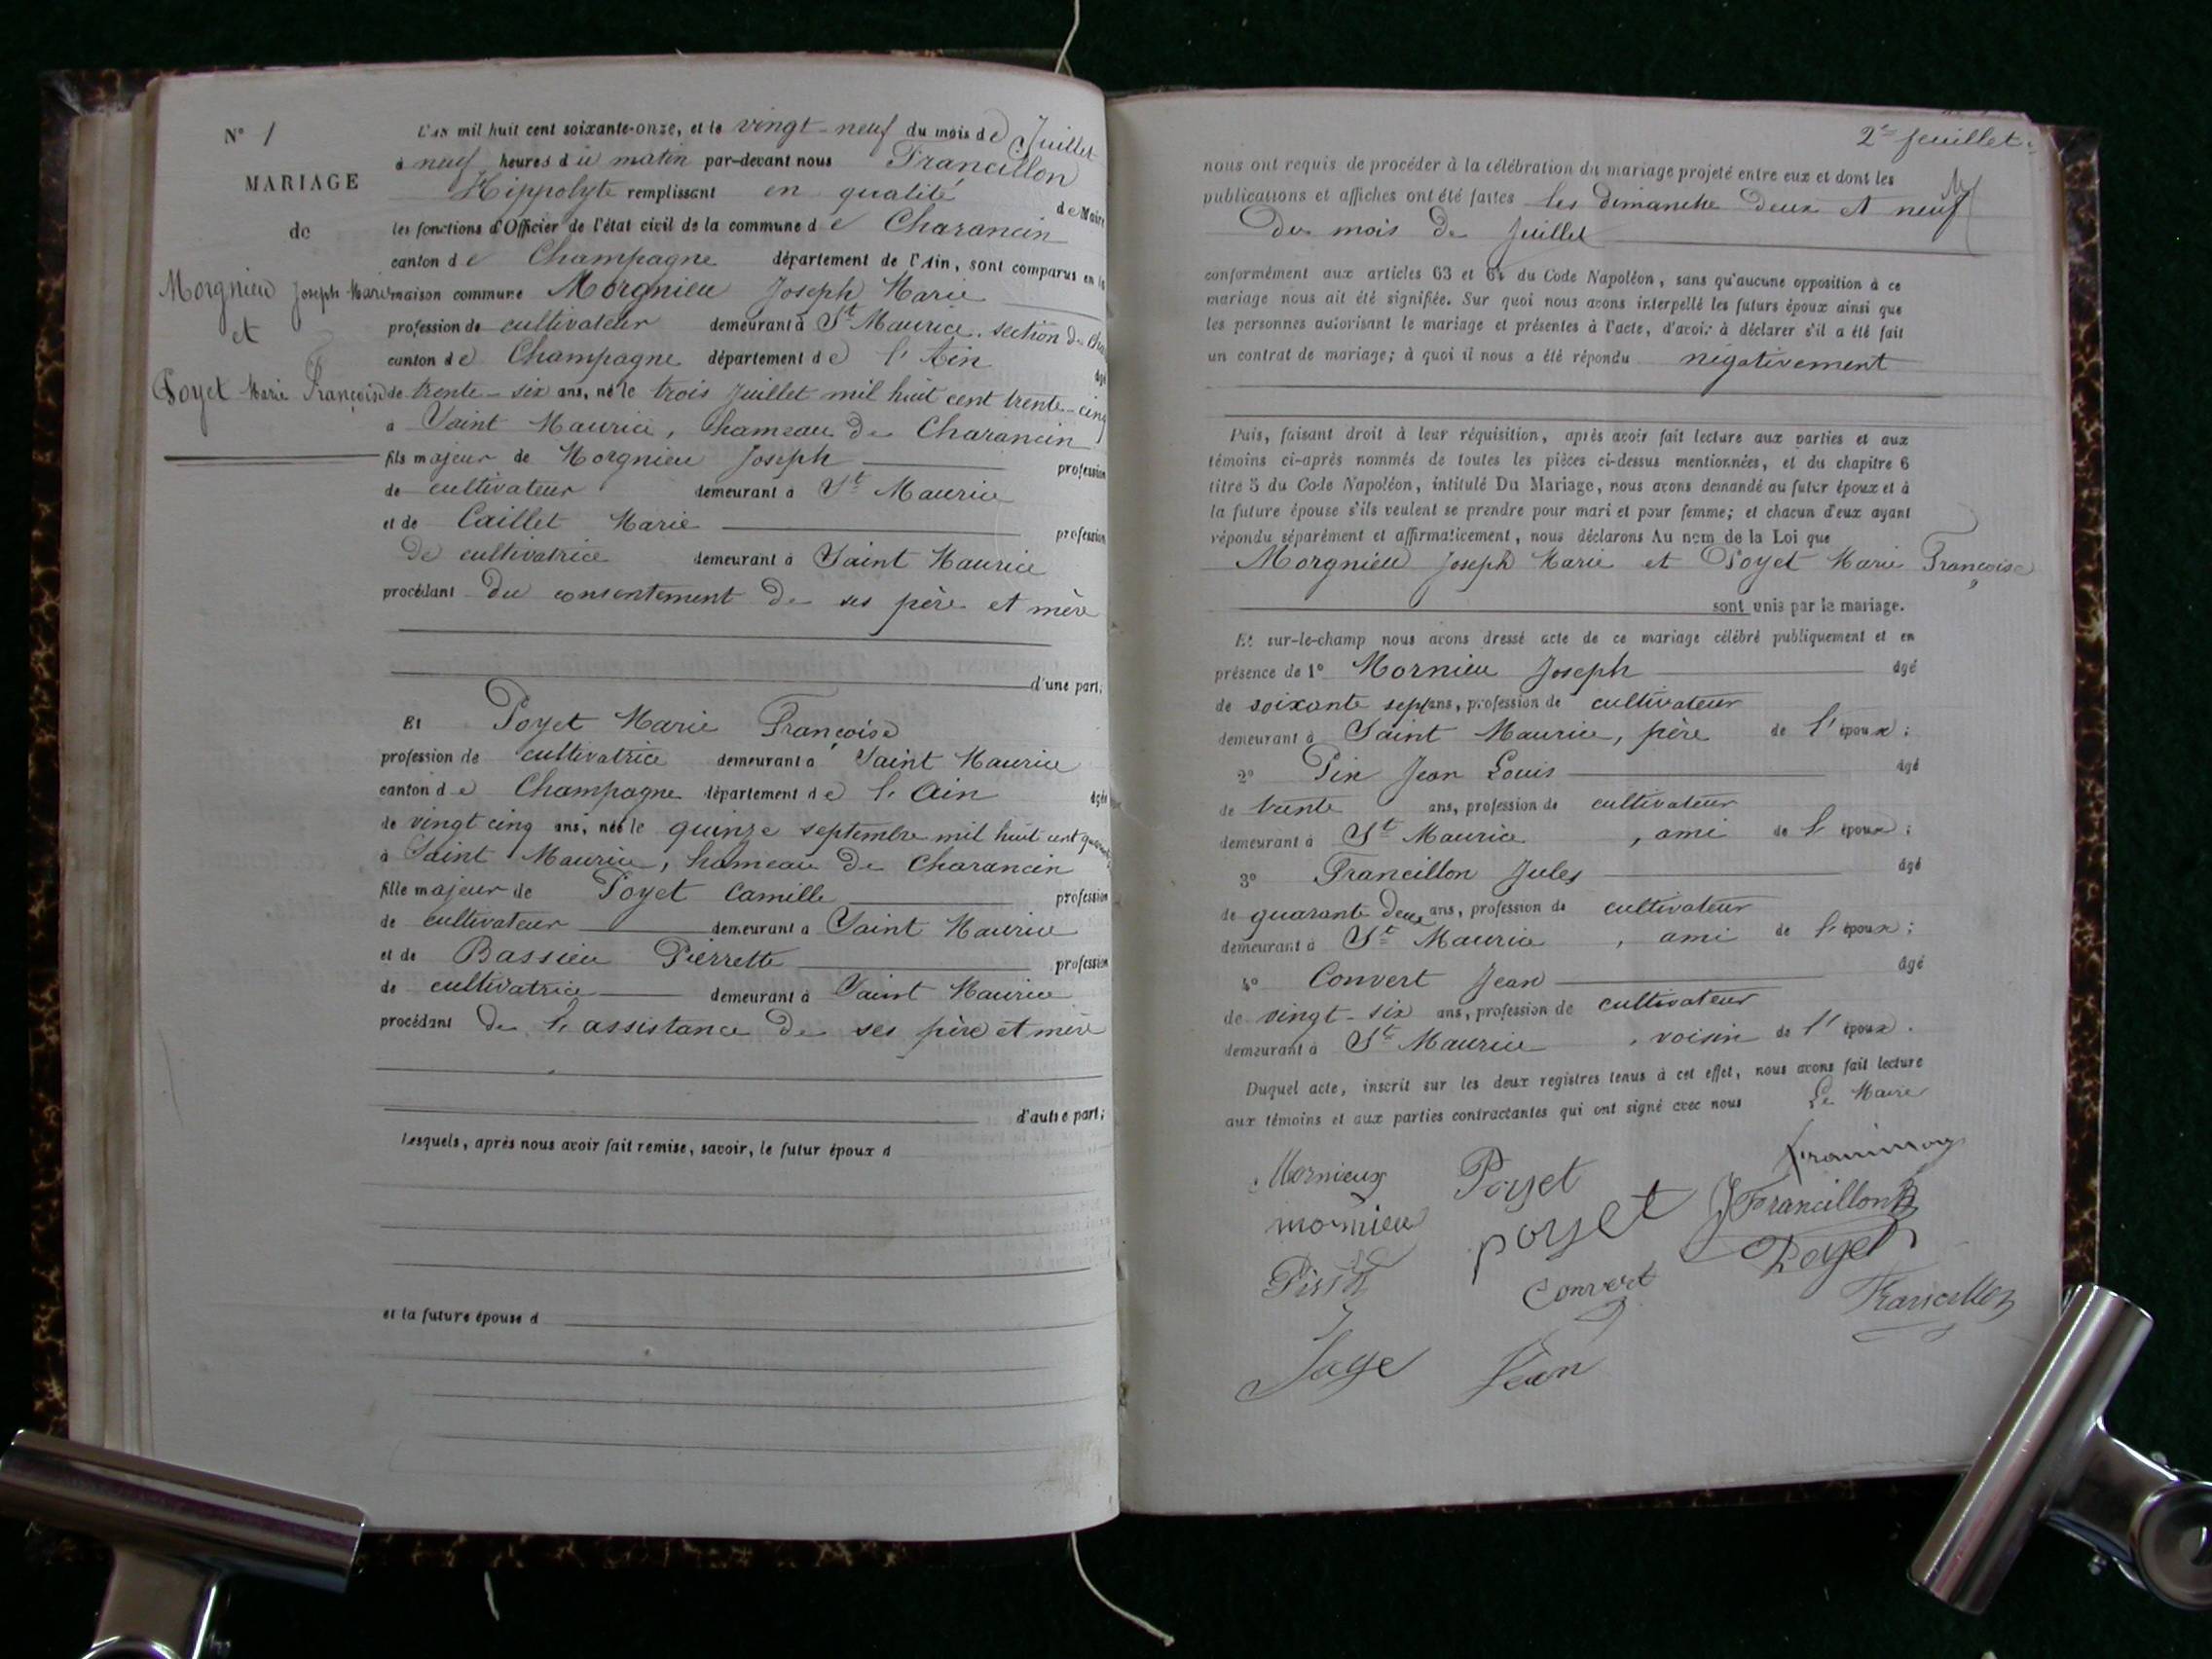 N° 1
MARIAGE
de
Morgnieu Joseph Marie
et
Poyet Marie Françoise
L'an mil huit cent soixante-onze, et le vingt-neuf du mois de Juillet
à neuf heures du matin par-devant nous Francillon
Hippolyte remplissant en qualité de Maire
les fonctions d'Officier de l'état civil de la commune de Charancin
canton de Champagne département de l'Ain, sont comparus en la
maison commune Morgnieu Joseph Marie
profession de cultivateur demeurant à St Maurice, section de Cha
canton de Champagne département de l'Ain âgé
de trente-six ans, né le trois Juillet mil huit cent trente-cinq
à Saint Maurice, hameau de Charancin
fils majeur de Morgnieu Joseph profession
de cultivateur demeurant à St Maurice
et de Caillet Marie profession
de cultivatrice demeurant à Saint Maurice
procédant du consentement de ses père et mère
d'une part;
Et Poyet Marie Françoise
profession de cultivatrice demeurant à Saint Maurice
canton de Champagne département de l'Ain âgée
de vingt cinq ans, née le quinze septembre mil huit cent
à Saint Maurice, hameau de Charancin
fille majeur de Poyet Camille profession
de cultivateur demeurant à Saint Maurice
et de Bassieu Pierrette profession
de cultivatrice demeurant à Saint Maurice
procédant de l'assistance de ses père et mère
d'autre part;
Lesquels, après nous avoir fait remise, savoir, le futur époux d
et la future épouse d
2e feuillet.
nous ont requis de procéder à la célébration du mariage projeté entre eux et dont les
publications et affiches ont été faites les dimanche deux et neuf
du mois de Juillet
conformément aux articles 63 et 64 du Code Napoléon, sans qu'aucune opposition à ce
mariage nous ait été signifiée. Sur quoi nous avons interpellé les futurs époux ainsi que
les personnes autorisant le mariage et présentes à l'acte, d'avoir à déclarer s'il a été fait
un contrat de mariage; à quoi il nous a été répondu négativement
Puis, faisant droit à leur réquisition, après avoir fait lecture aux parties et aux
témoins ci-après nommés de toutes les pièces ci-dessus mentionnées, et du chapitre 6
titre 5 du Code Napoléon, intitulé Du Mariage, nous avons demandé au futur époux et à
la future épouse s'ils veulent se prendre pour mari et pour femme; et chacun d'eux ayant
répondu séparément et affirmativement, nous déclarons Au nom de la Loi que
Morgnieu Joseph Marie et Poyet Marie Françoise
sont unis par le mariage.
Et sur-le-champ nous avons dressé acte de ce mariage célébré publiquement et en
présence de 1° Mornieu Joseph âgé
de soixante sept ans, profession de cultivateur
demeurant à Saint Maurice, père de l'époux;
2° Pin Jean Louis âgé
de trente ans, profession de cultivateur
demeurant à St Maurice, ami de l'époux;
3° Francillon Jules âgé
de quarante deux ans, profession de cultivateur
demeurant à St Maurice, ami de l'époux;
4° Convert Jean âgé
de vingt-six ans, profession de cultivateur
demeurant à St Maurice, voisin de l'époux.
Duquel acte, inscrit sur les deux registres tenus à cet effet, nous avons fait lecture
aux témoins et aux parties contractantes qui ont signé avec nous Le Maire
Mornieux Poyet
mornieu poyet J Francillon
Poyet
Convert Francillon
Jean